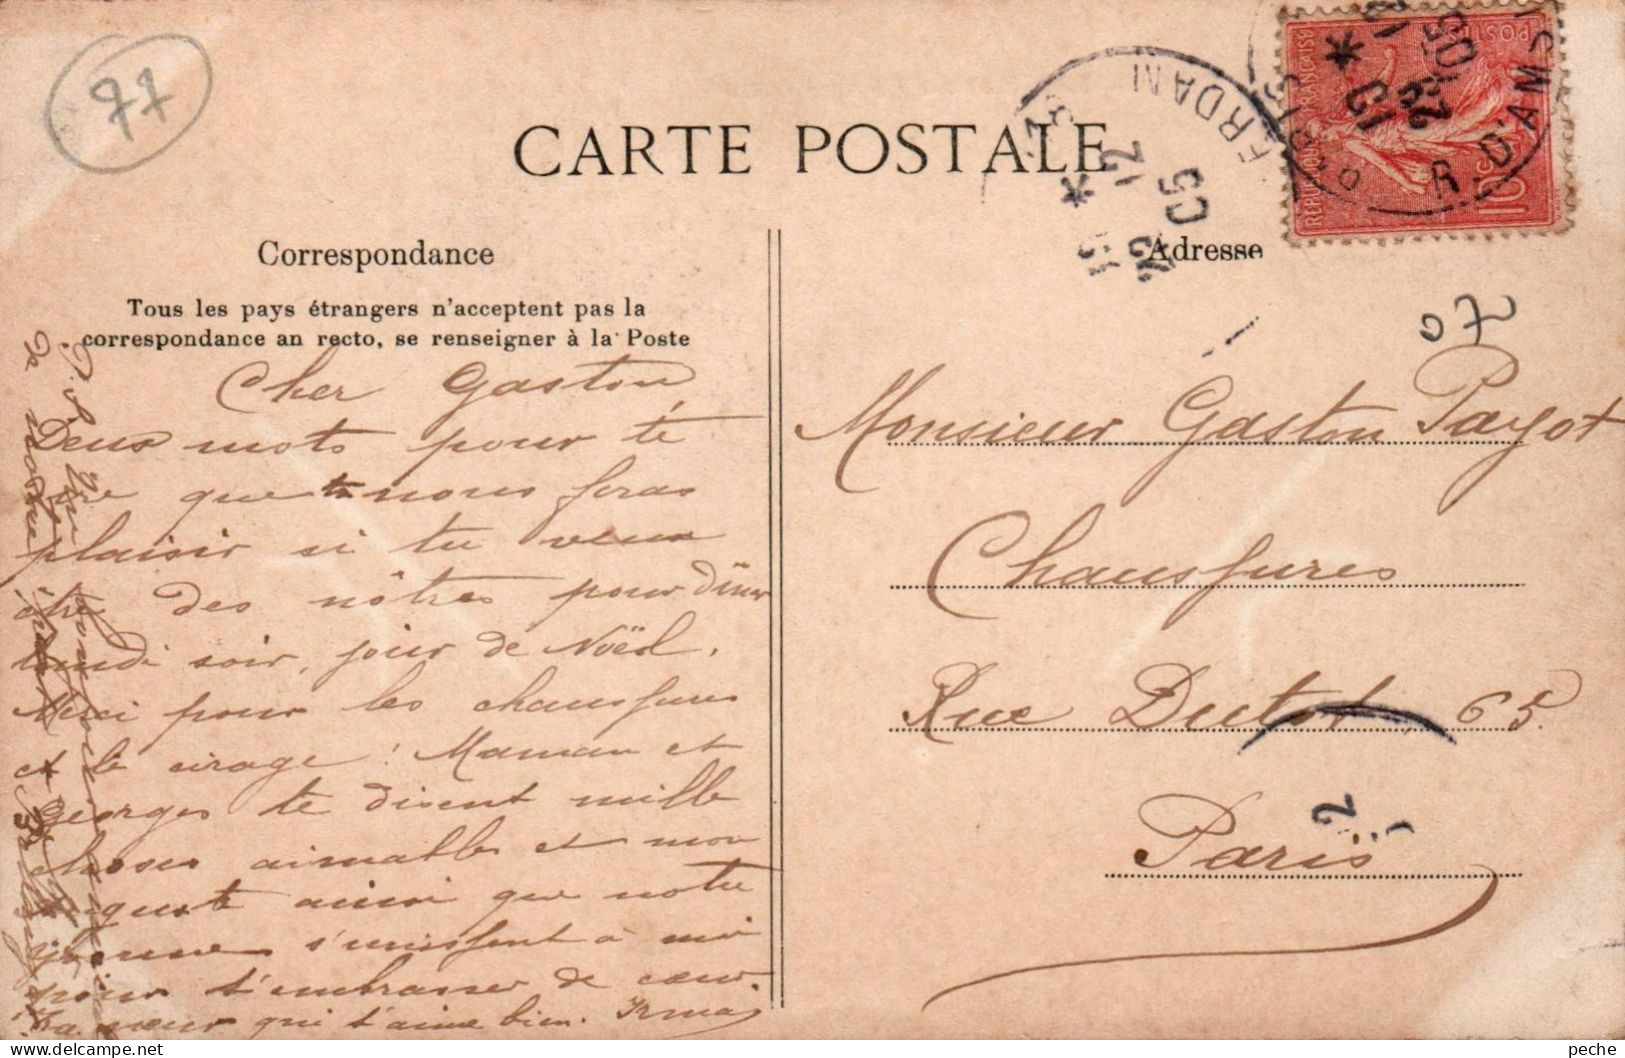 77
CARTE POSTALE
Correspondance
Tous les pays étrangers n'acceptent pas la
correspondance an recto, se renseigner à la Poste
Cher Gaston,
Deux mots pour te
dire que tu nous feras
plaisir si tu veux
être des nôtres pour dîner
lundi soir, jour de Noël.
Merci pour les chaussures
et le cirage! Maman et
Georges te disent mille
choses aimables et mon
Auguste ainsi que notre
s'unissent à moi
pour t'embrasser de cœur.
Ta sœur qui t'aime bien. Irma
P.S.
de notre
PARIS
R. D'AMSTERDAM
19 *
12
23
05
REPUBLIQUE FRANCAISE
POSTES
10c
Adresse
07
Monsieur Gaston Payot
Chaussures
Rue Dutot, 65
Paris
2
peche